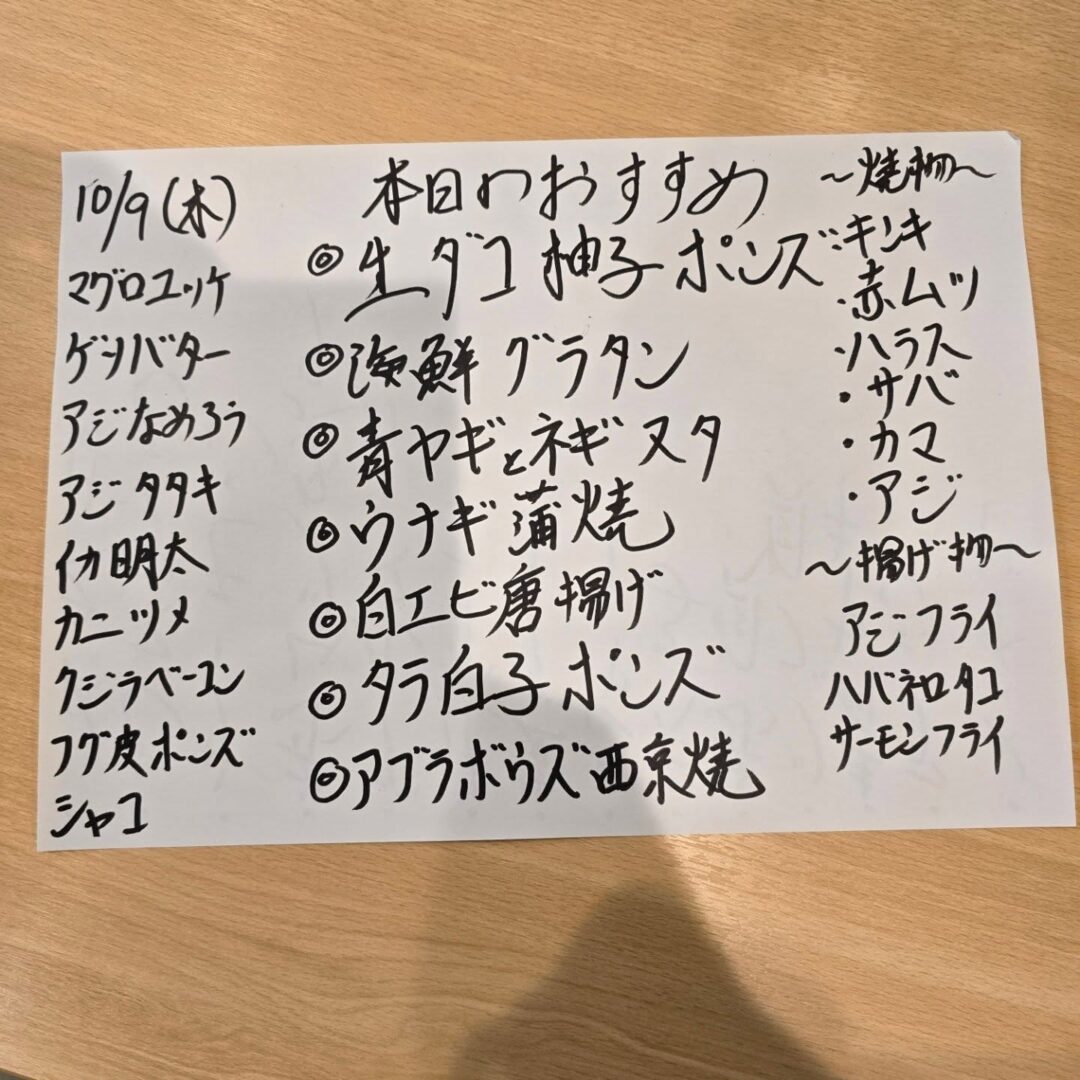 10/9(木)
マグロユッケ
ゲソバター
アジなめろう
アジタタキ
イカ明太
カニツメ
クジラベーコン
フグ皮ポンズ
シャコ
本日のおすすめ
◎生ダコ柚子ポンズ
◎海鮮グラタン
◎青ヤギとネギヌタ
◎ウナギ蒲焼
◎白エビ唐揚げ
◎タラ白子ポンズ
◎アブラボウズ西京焼
〜焼物〜
・キンキ
・赤ムツ
・ハラス
・サバ
・カマ
・アジ
〜揚げ物〜
アジフライ
ハバネロタコ
サーモンフライ